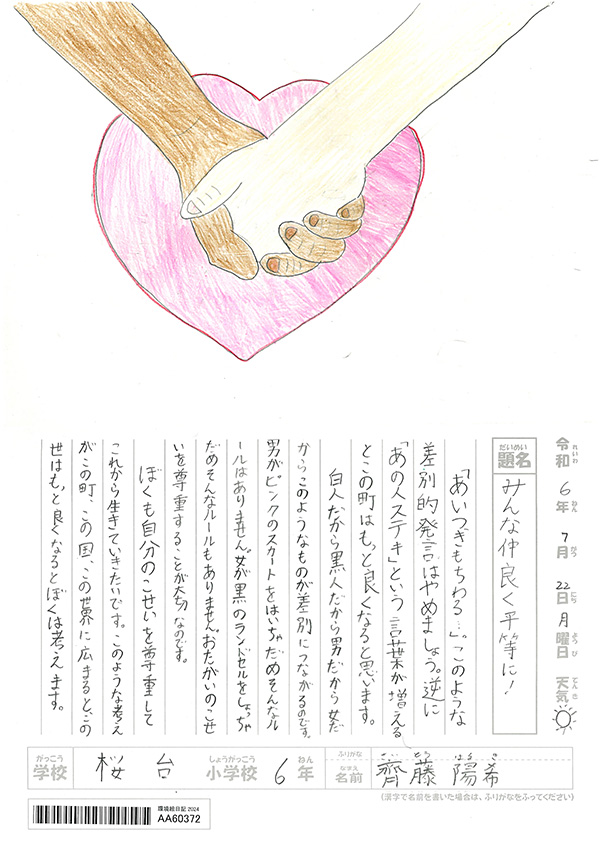 令和6年7月22日月曜日 天気
れいわ ねん がつ にち ようび てんき
だいめい
題名 みんな仲良く平等に!
「あいつきもちわる…。」このような
差別的発言はやめましょう。逆に
「あの人ステキ」という言葉が増える
とこの町はもっと良くなると思います。
白人だから黒人だから男だから女だ
からこのようなものが差別につながるのです。
男がピンクのスカートをはいちゃだめそんなル
ールはありません。女が黒のランドセルをしょっちゃ
だめそんなルールもありません。おたがいのこせ
いを尊重することが大切なのです。
ぼくも自分のこせいを尊重して
これから生きていきたいです。このような考え
がこの町、この国、この世界に広まると、この
世はもっと良くなるとぼくは考えます。
がっこう
学校 桜台
しょうがっこう
小学校 6年
ねん
ふりがな さい とう はる き
なまえ
名前 齊藤 陽希
(漢字で名前を書いた場合は、ふりがなをふってください)
環境絵日記 2024
AA60372